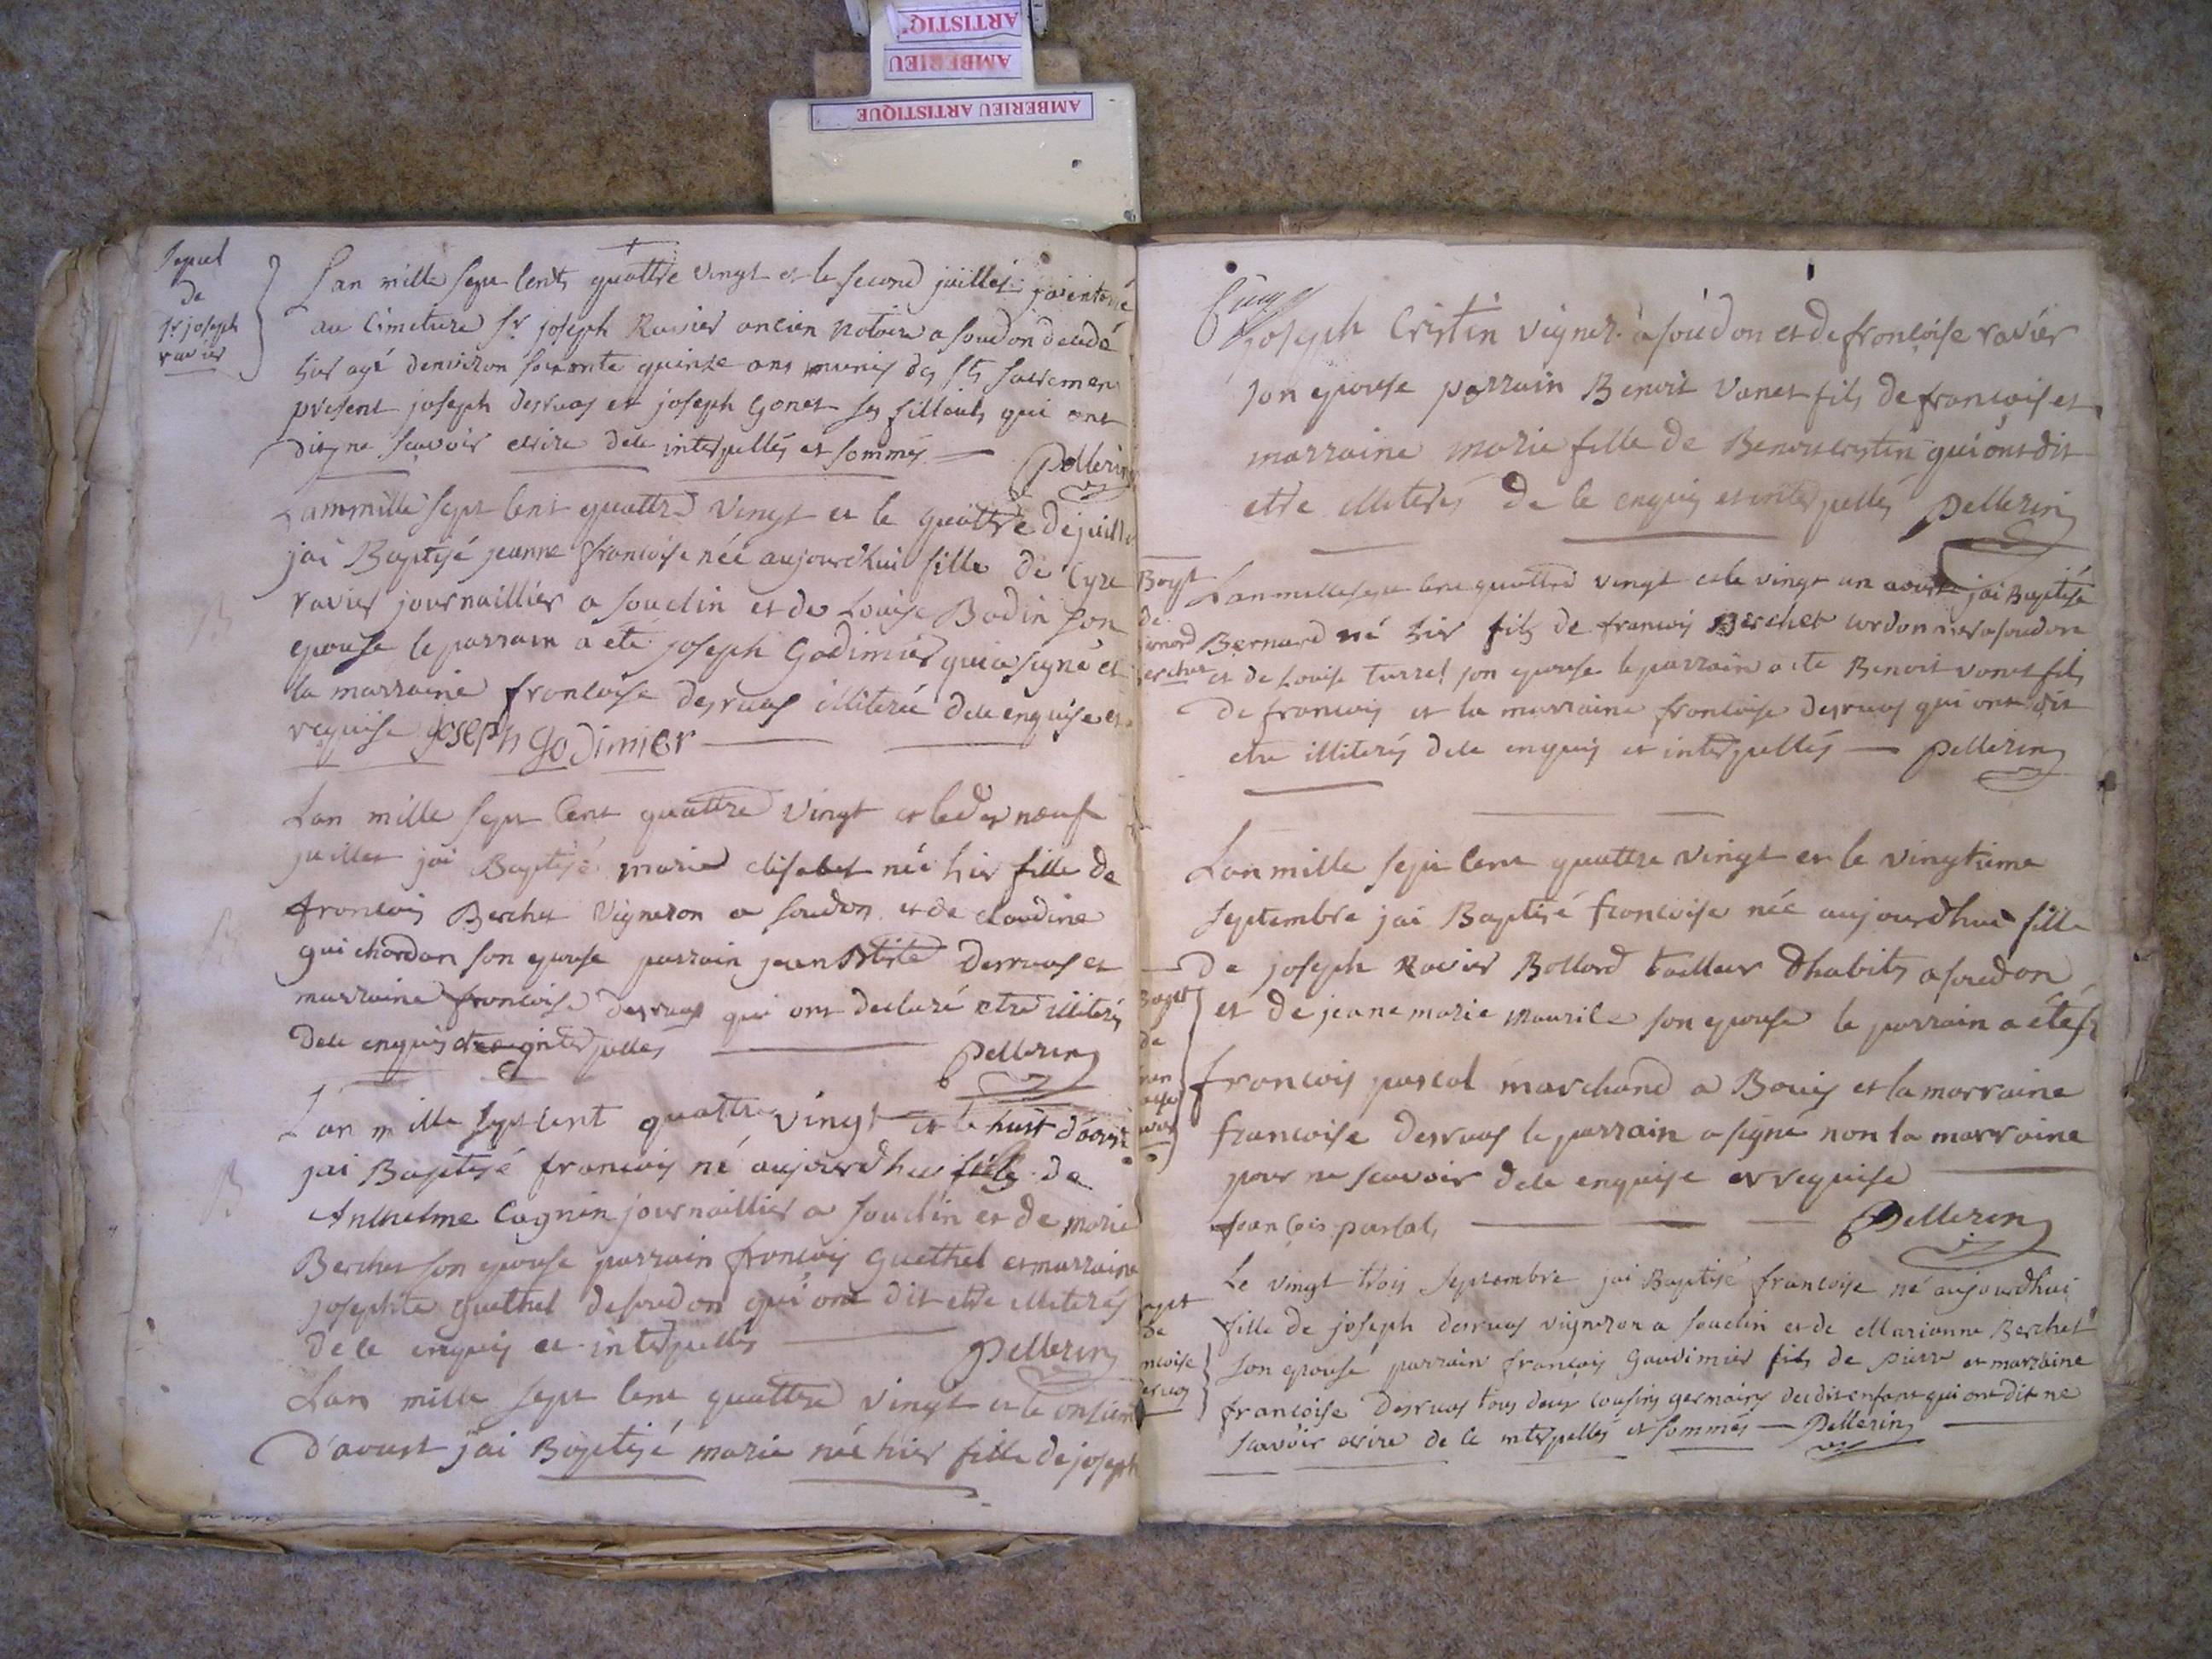 ARTISTIQ
AMBERIEU
AMBERIEU ARTISTIQUE
Sepul
de
sr joseph
ravier
Lan mille sept cents quattre vingt et le second juillet jai enterré
au cimetiere sr joseph Ravier ancien notaire a soudon decedé
hier agé denviron soixante quinze ans munis des sts sacremens
present joseph desruas et joseph Gonet ses filliauls qui ont
dit ne scavoir ecrire de ce interpellés et sommés Pellerin
Lan mille sept cent quattre vingt et le quattre de juillet
jai Baptisé jeanne francoise née aujourdhui fille de Cyre
ravier journaillier a souclin et de Louise Bodin son
epouse le parrain a eté joseph Godimier qui a signé et
la marraine francoise desruas illiterée de ce enquise et
requise joseph godimier
Lan mille sept cent quattre vingt et le dix neuf
juillet jai Baptisé marie elisabet née hier fille de
francois Berchet vigneron a soudon et de claudine
guichardon son epouse parrain jean desruas et
marraine francoise desruas qui ont declaré etre illiterés
de ce enquis et interpelles Pellerin
Lan mille sept cent quattre vingt et le huit d'aoust
jai Baptisé francois né aujourdhui fils de
Anthelme Cagnin journaillier a souclin et de marie
Berchet son epouse parrain francois Guethel et marraine
josephte Guethel de soudon qui ont dit etre illiterés
de ce enquis et interpellés Pellerin
Lan mille sept cent quattre vingt et le onsieme
d'aoust j'ai Baptisé marie née hier fille de joseph
joseph Cristin vigner. a soudon et de francoise ravier
son epouse parrain Benoit Vanet fils de francois et
marraine marie fille de Benoit cristin qui ont dit
etre illiterés de ce enquis et interpellés Pellerin
Bapt
de
Lan mille sept cent quattre vingt et le vingt un aoust jai Baptisé
Bernard né hier fils de francois Berchet cordonnier a soudon
et de Louise turrel son epouse le parrain a ete Benoit vanet fils
de francois et la marraine francoise desruas qui ont dit
etre illiterés de ce enquis et interpellés Pellerin
Lan mille sept cent quattre vingt et le vingtieme
septembre jai Baptisé francoise née aujourdhui fille
de joseph Ravier Bollard tailleur dhabits a soudon
et de jeane marie maurice son epouse le parrain a été sr
francois pascal marchand a Bouis et la marraine
francoise desruas le parrain a signe non la marraine
pour ne scavoir de ce enquise et requise
francois pascal Pellerin
Le vingt trois septembre jai Baptisé francoise né aujourdhui
fille de joseph desruas vigneron a souclin et de Marianne Berchet
son epouse parrain francois Gaudimier fils de pierre et marraine
francoise desruas tous deux cousins germains du dit enfant qui ont dit ne
scavoir ecrire de ce interpellés et sommés Pellerin